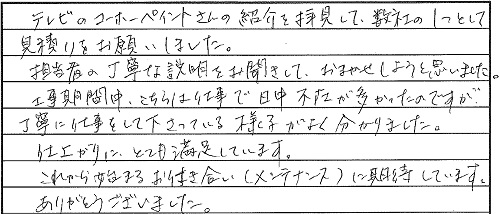 テレビのユーホーペイントさんの紹介を拝見して、数社の1つとして
見積りをお願いしました。
担当者の丁寧な説明をお聞きして、おまかせしようと思いました。
工事期間中、こちらは仕事で日中不在が多かったのですが
丁寧に仕事をして下さっている様子がよく分かりました。
仕上がりに、とても満足しています。
これから始まるお付き合い(メンテナンス)に期待しています。
ありがとうございました。